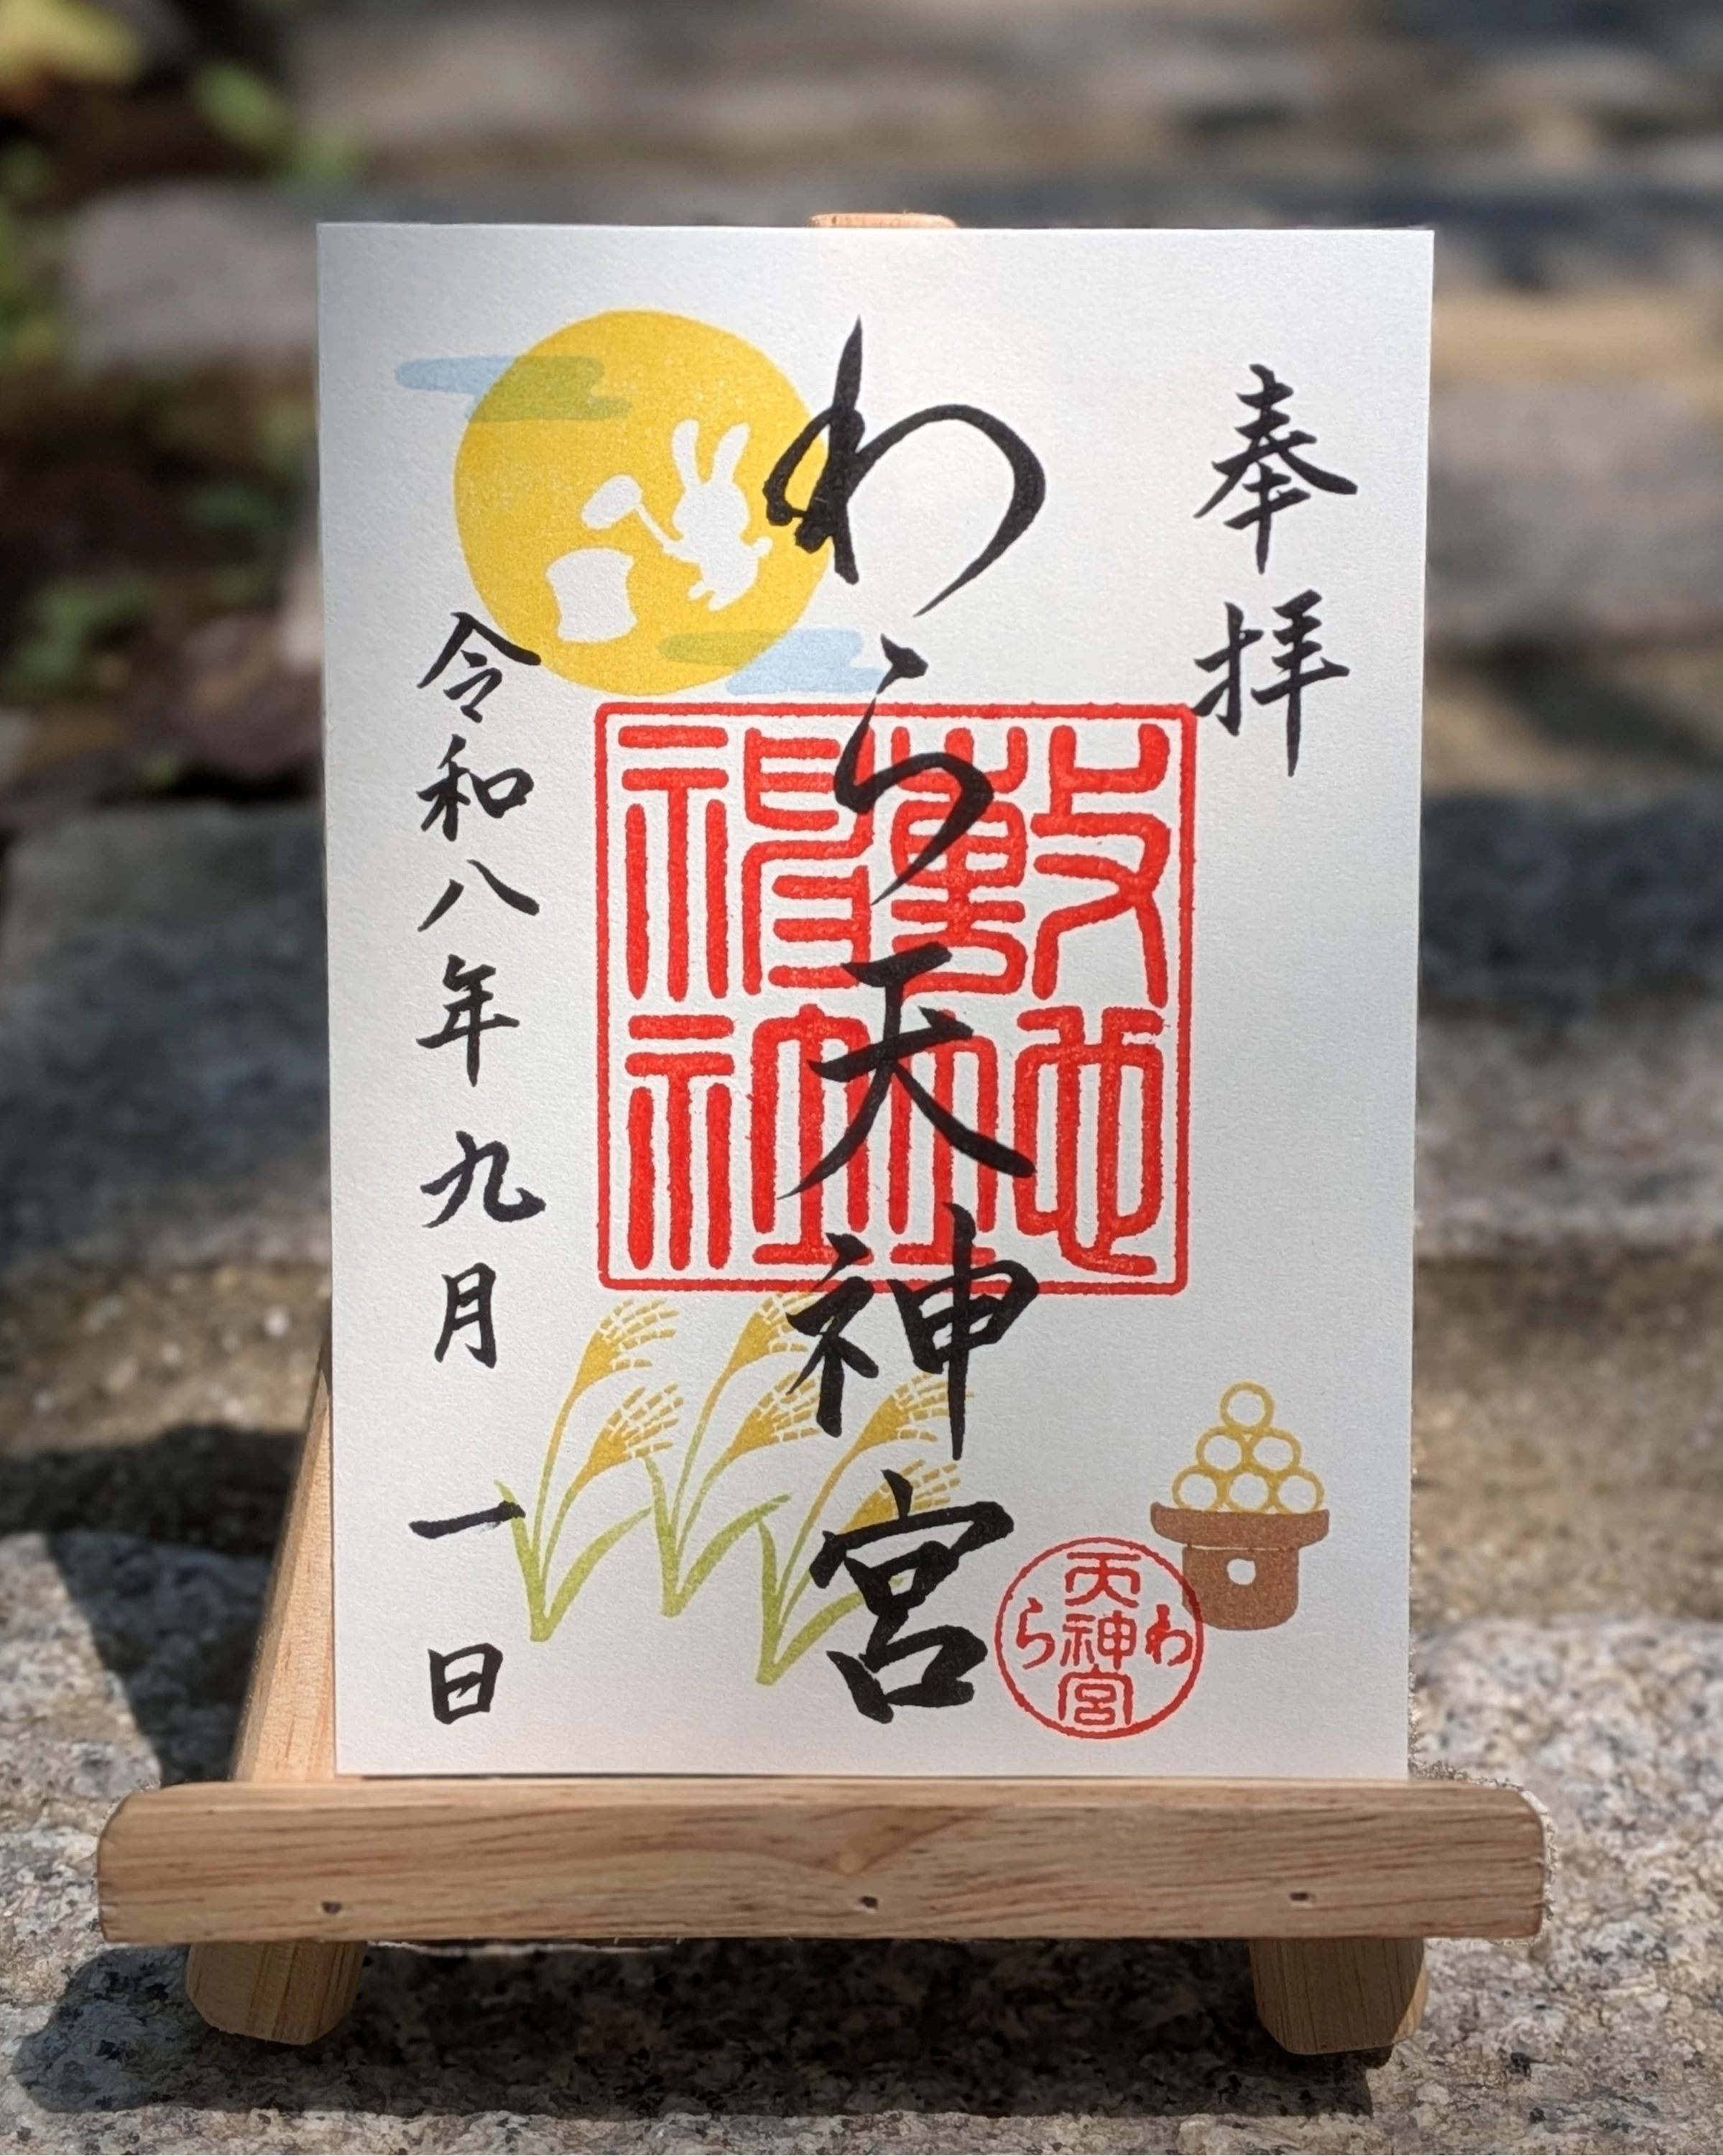 奉拝
わら天神宮
敷地神社
令和八年九月一日
わら天神宮